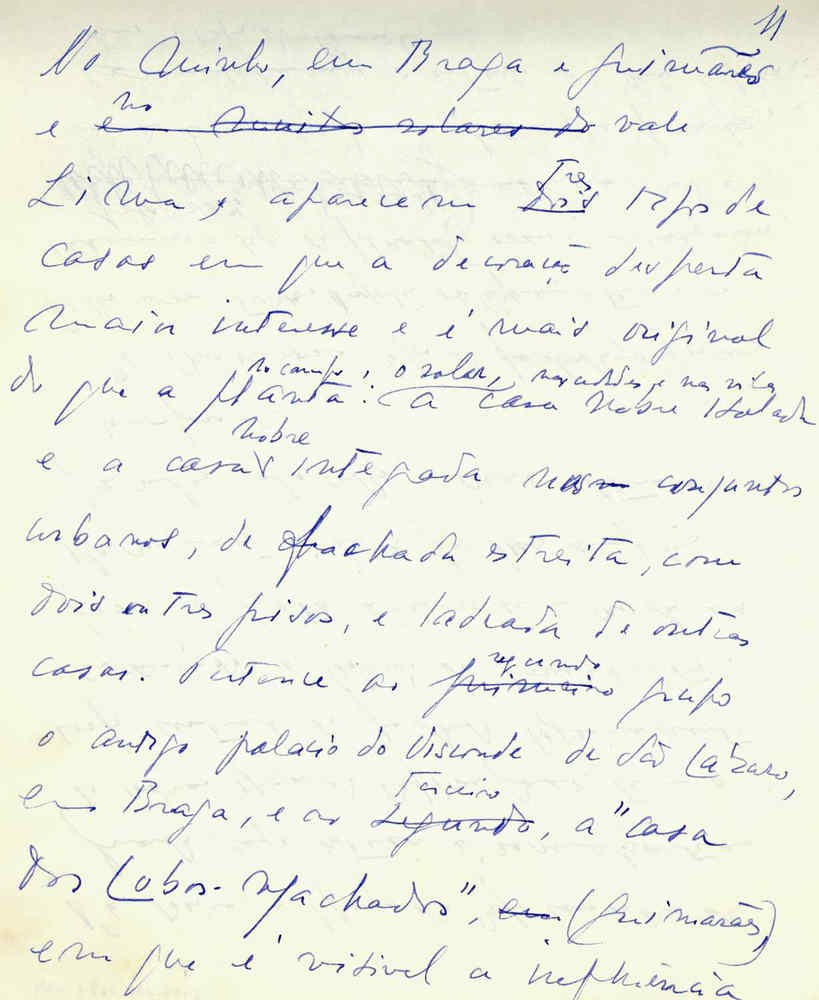 11
No Minho, em Braga e Guimarães
no
e e muitos solares do vale
Lima, aparecem
Tres
dois tipos de
casas em que a decoração desperta
maior interesse e é mais original
no campo, o solar, nas cidades e nas vilas
do que a planta: a casa nobre isolada
nobre
e a casa integrada nos conjuntos
urbanos, de fachada estreita, com
dois ou tres pisos, e ladeada de outras
segundo
casas. Pertence ao primeiro grupo
o antigo palacio do Visconde de São Lázaro,
Terceiro
em Braga, e ao segundo, a "casa
dos Lobos-Machados", em (Guimarães)
em que é visivel a influência